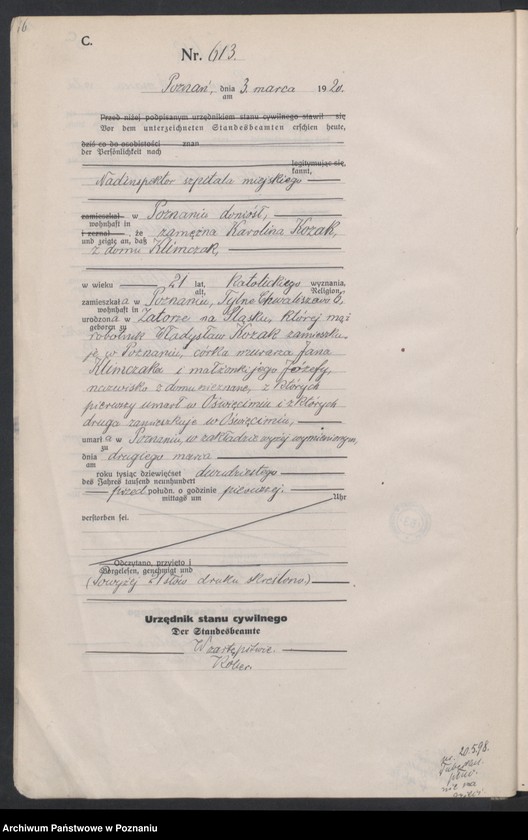 76.
C.
Nr. 613.
Poznań, dnia 3. marca 1920.
am
Przed niżej podpisanym urzędnikiem stanu cywilnego stawił się
Vor dem unterzeichneten Standesbeamten erschien heute,
dziś co do osobistości znan
der Persönlichkeit nach
legitymując się.
kannt,
Nadinspektor szpitala miejskiego
zamieszkał w Poznaniu doniósł,
wohnhaft in
i zeznał, że zamężna Karolina Kozak,
und zeigte an, daß
z domu Klimczak,
w wieku 21 lat, katolickiego wyznania,
alt, Religion,
zamieszkała w Poznaniu, Tylne Chwaliszewo 6,
wohnhaft in
urodzona w Zatorze na Śląsku, której mąż
geboren zu
robotnik Władysław Kozak zamieszku-
je w Poznaniu, córka murarza Jana
Klimczaka i małżonki jego Józefy,
nazwisko z domu nieznane, z których
pierwszy umarł w Oświęcimiu i z których
druga zamieszkuje w Oświęcimiu,
umarła w Poznaniu, w zakładzie wyżej wymienionym,
zu
dnia drugiego marca
am
roku tysiąc dziewięćset dwudziestego
des Jahres tausend neunhundert
przed połudn. o godzinie pierwszej.
mittags um Uhr
verstorben sei.
Odczytano, przyjęto i
Vorgelesen, genehmigt und
(Powyżej 21 słów druku skreślono)
Urzędnik stanu cywilnego
Der Standesbeamte
W zastępstwie.
20.5.98.
Archiwum Państwowe w Poznaniu